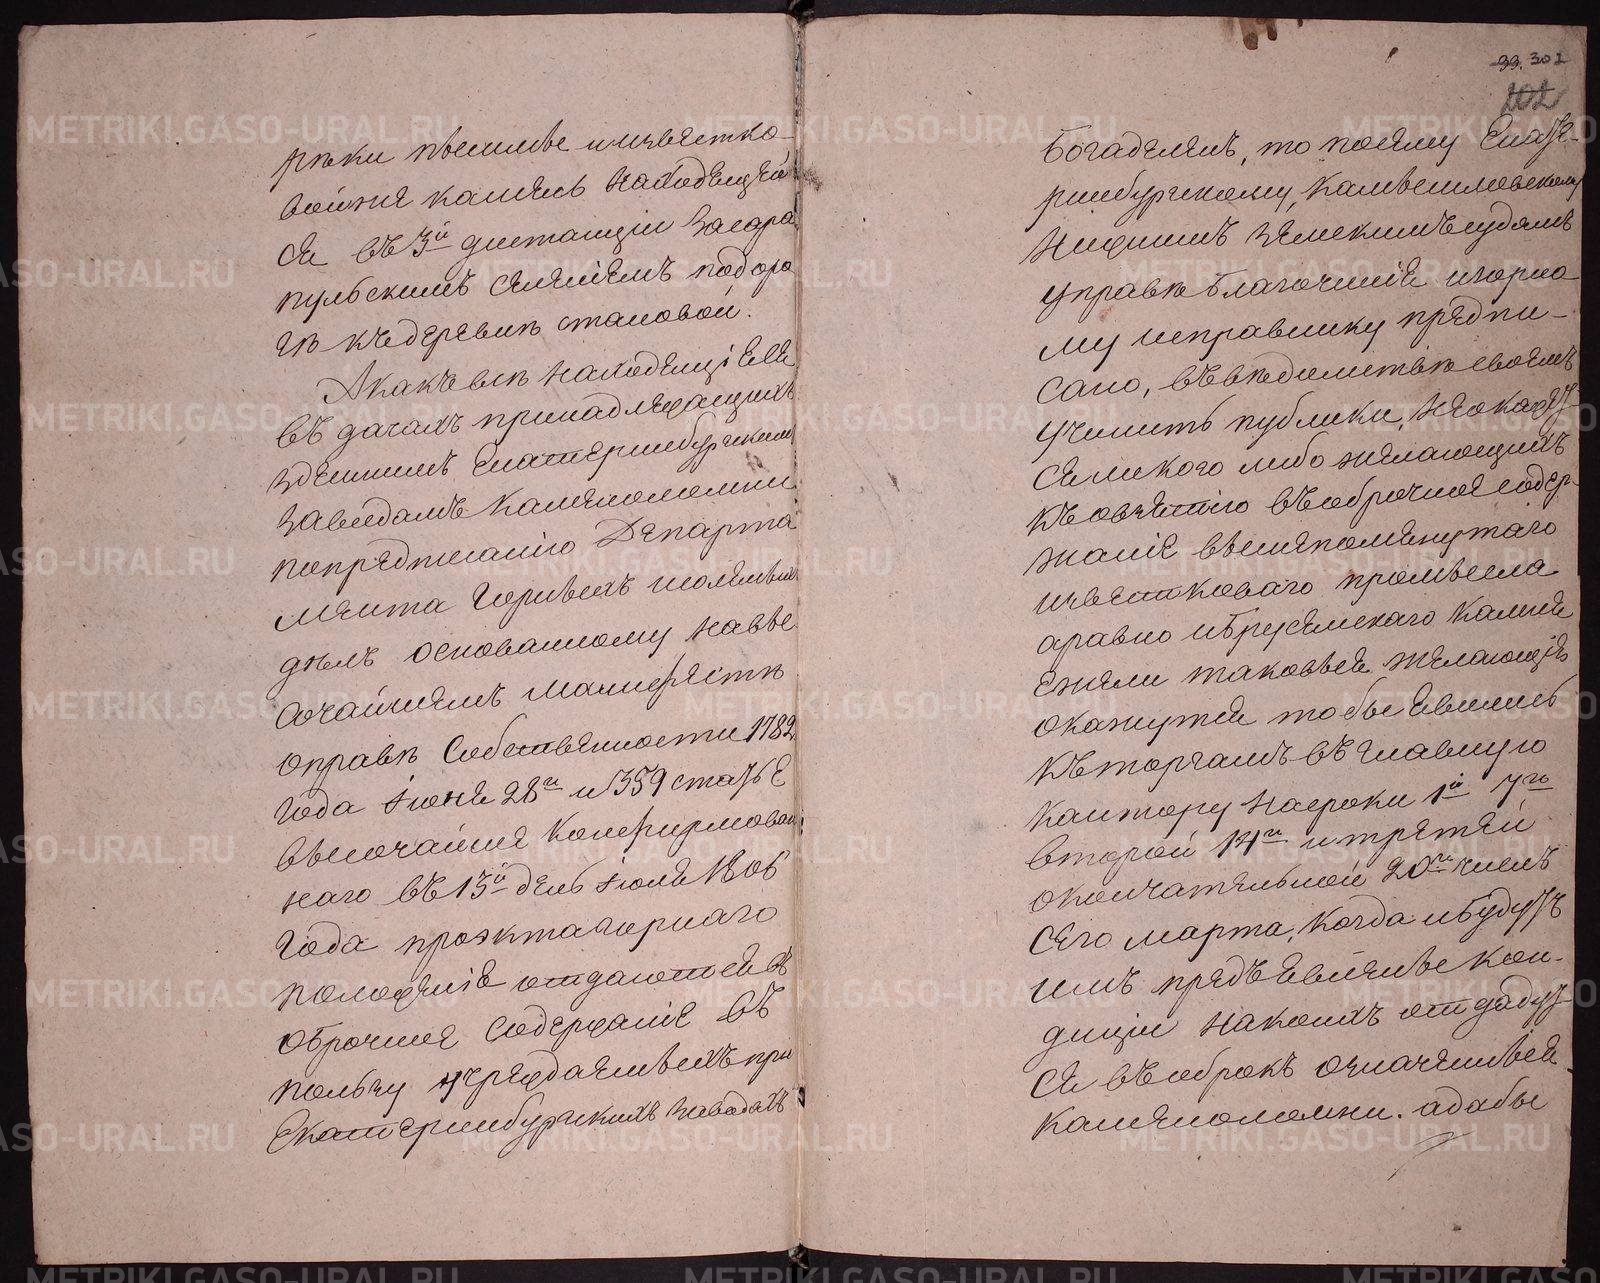 рѣки пвешиве и известко-
войже камень находящей
ся въ 3й дистанціи Засара
пульскимъ селеніемъ подоро
гѣ къдеревнѣ становой.
Акакъвсѣ находящіеся
въ дачахъ принадлежащихъ
здешнимъ Екатеринбургскимъ
заводамъ каменоломни
попредписанію Департа
мента Горныхъ исоляныхъ
дѣлъ основанному навы
сочайшемъ манифестѣ
оправѣ собственности 1782
года іюня 28го и 359 статье
высочайше конфирмован
наго въ 13й день іюля 1806
года проэкта горнаго
положеніе отдаются въ
оброчное содержаніе въ
пользу учрежденныхъ при
Екатеринбургскихъ заводахъ
33. 301
202
Богаделень, то посему Екате-
ринбургскому, Камышловскому
Нижнимъ земскимъ судамъ
управѣ благочиніе игорно
му исправнику предпи-
сано, въвѣдомствѣ своемъ
учинить публики, неокажут
ся ли кого либо желающихъ
къ овзятію въоброчное содер-
жаніе вышепомянутаго
известковаго промысла
аравно иБрусенскаго камня
ежели таковые желающіе
окажутся тобы явились
къ торгамъ въ главную
кантору насроки 1й 7го
второй 14го и третей
окончательной 20го числъ
сего марта, когда ибудутъ
имъ предъявлены кон-
диціи накоихъ отдадут
ся въ оброкъ означенные
каменоломни. адабы